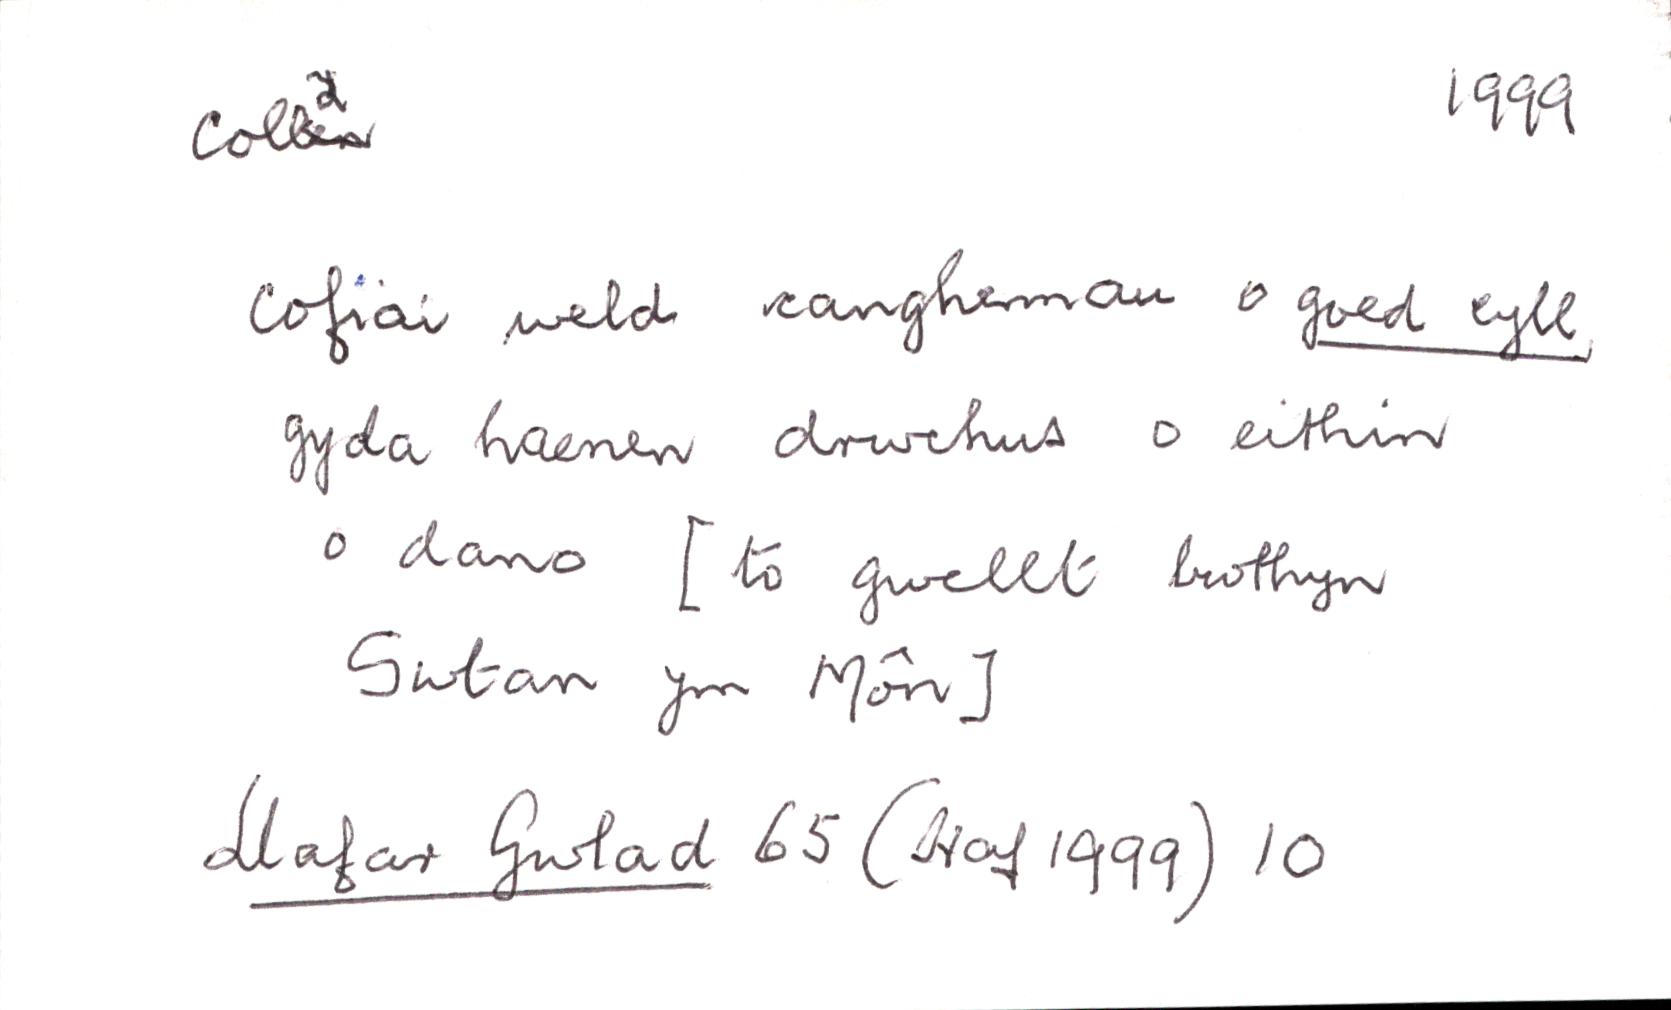 Coll²
1999
Cofiai weld canghennau o goed cyll,
gyda haenen drwchus o eithin
o dano [tô gwellt bwthyn
Swtan ym Môn]
Llafar Gwlad 65 (Haf 1999) 10